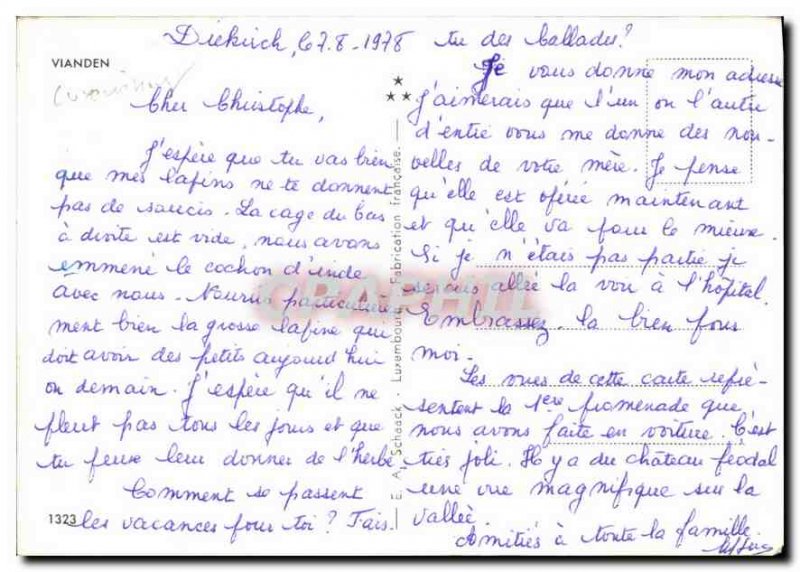 Diekirch, le 7.8-1978
VIANDEN
Cher Christophe,
J'espère que tu vas bien
que mes lapins ne te donnent
pas de soucis. La cage du bas
à droite est vide, nous avons
emmené le cochon d'inde
avec nous. Nourris particulière
ment bien la grosse lapine qui
doit avoir des petits aujourd'hui
ou demain. J'espère qu'il ne
pleut pas tous les jours et que
tu peux leur donner de l'herbe
Comment se passent
les vacances pour toi ? Fais
1323
E. A. Schaack - Luxembourg - Fabrication française.
tu des ballades ?
Je vous donne mon adresse
J'aimerais que l'un ou l'autre
d'entre vous me donne des nou-
velles de votre mère. Je pense
qu'elle est opérée maintenant
et qu'elle va pour le mieux.
Si je n'étais pas partie je
serais allée la voir à l'hôpital.
Embrassez-la bien pour
moi.
Les vues de cette carte repré-
sentent la 1ère promenade que
nous avons faite en voiture. C'est
très joli. Il y a du château féodal
une vue magnifique sur la
vallée.
Amitiés à toute la famille.
CPARAMA